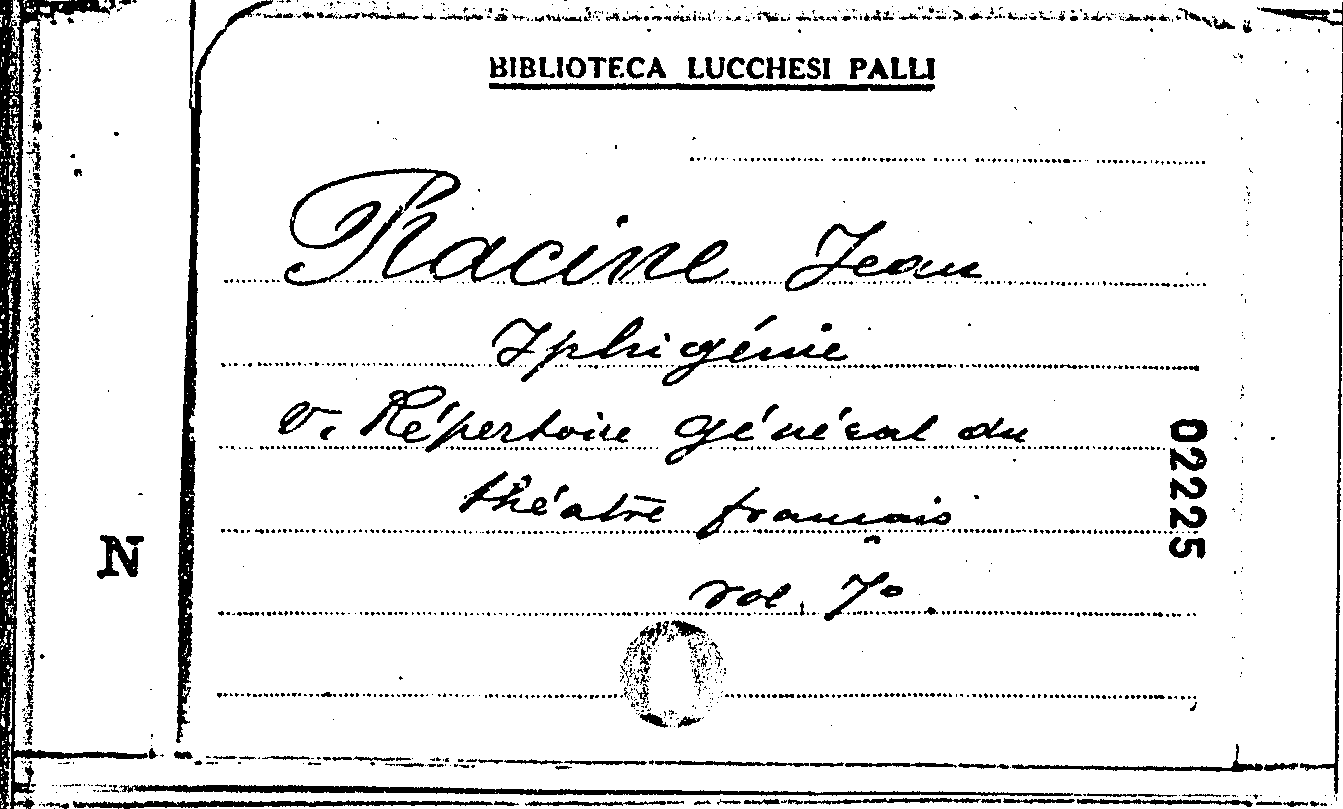 BIBLIOTECA LUCCHESI PALLI
Racine Jean
Iphigénie
v. Répertoire général du
théatre français
vol. 7°.
02225
N